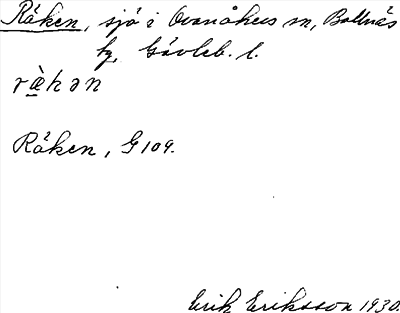 Råken, sjö i Ovanåkers sn, Bollnäs
tg, Gävleb. l.
Råken, G 109.
Erik Eriksson 1930.